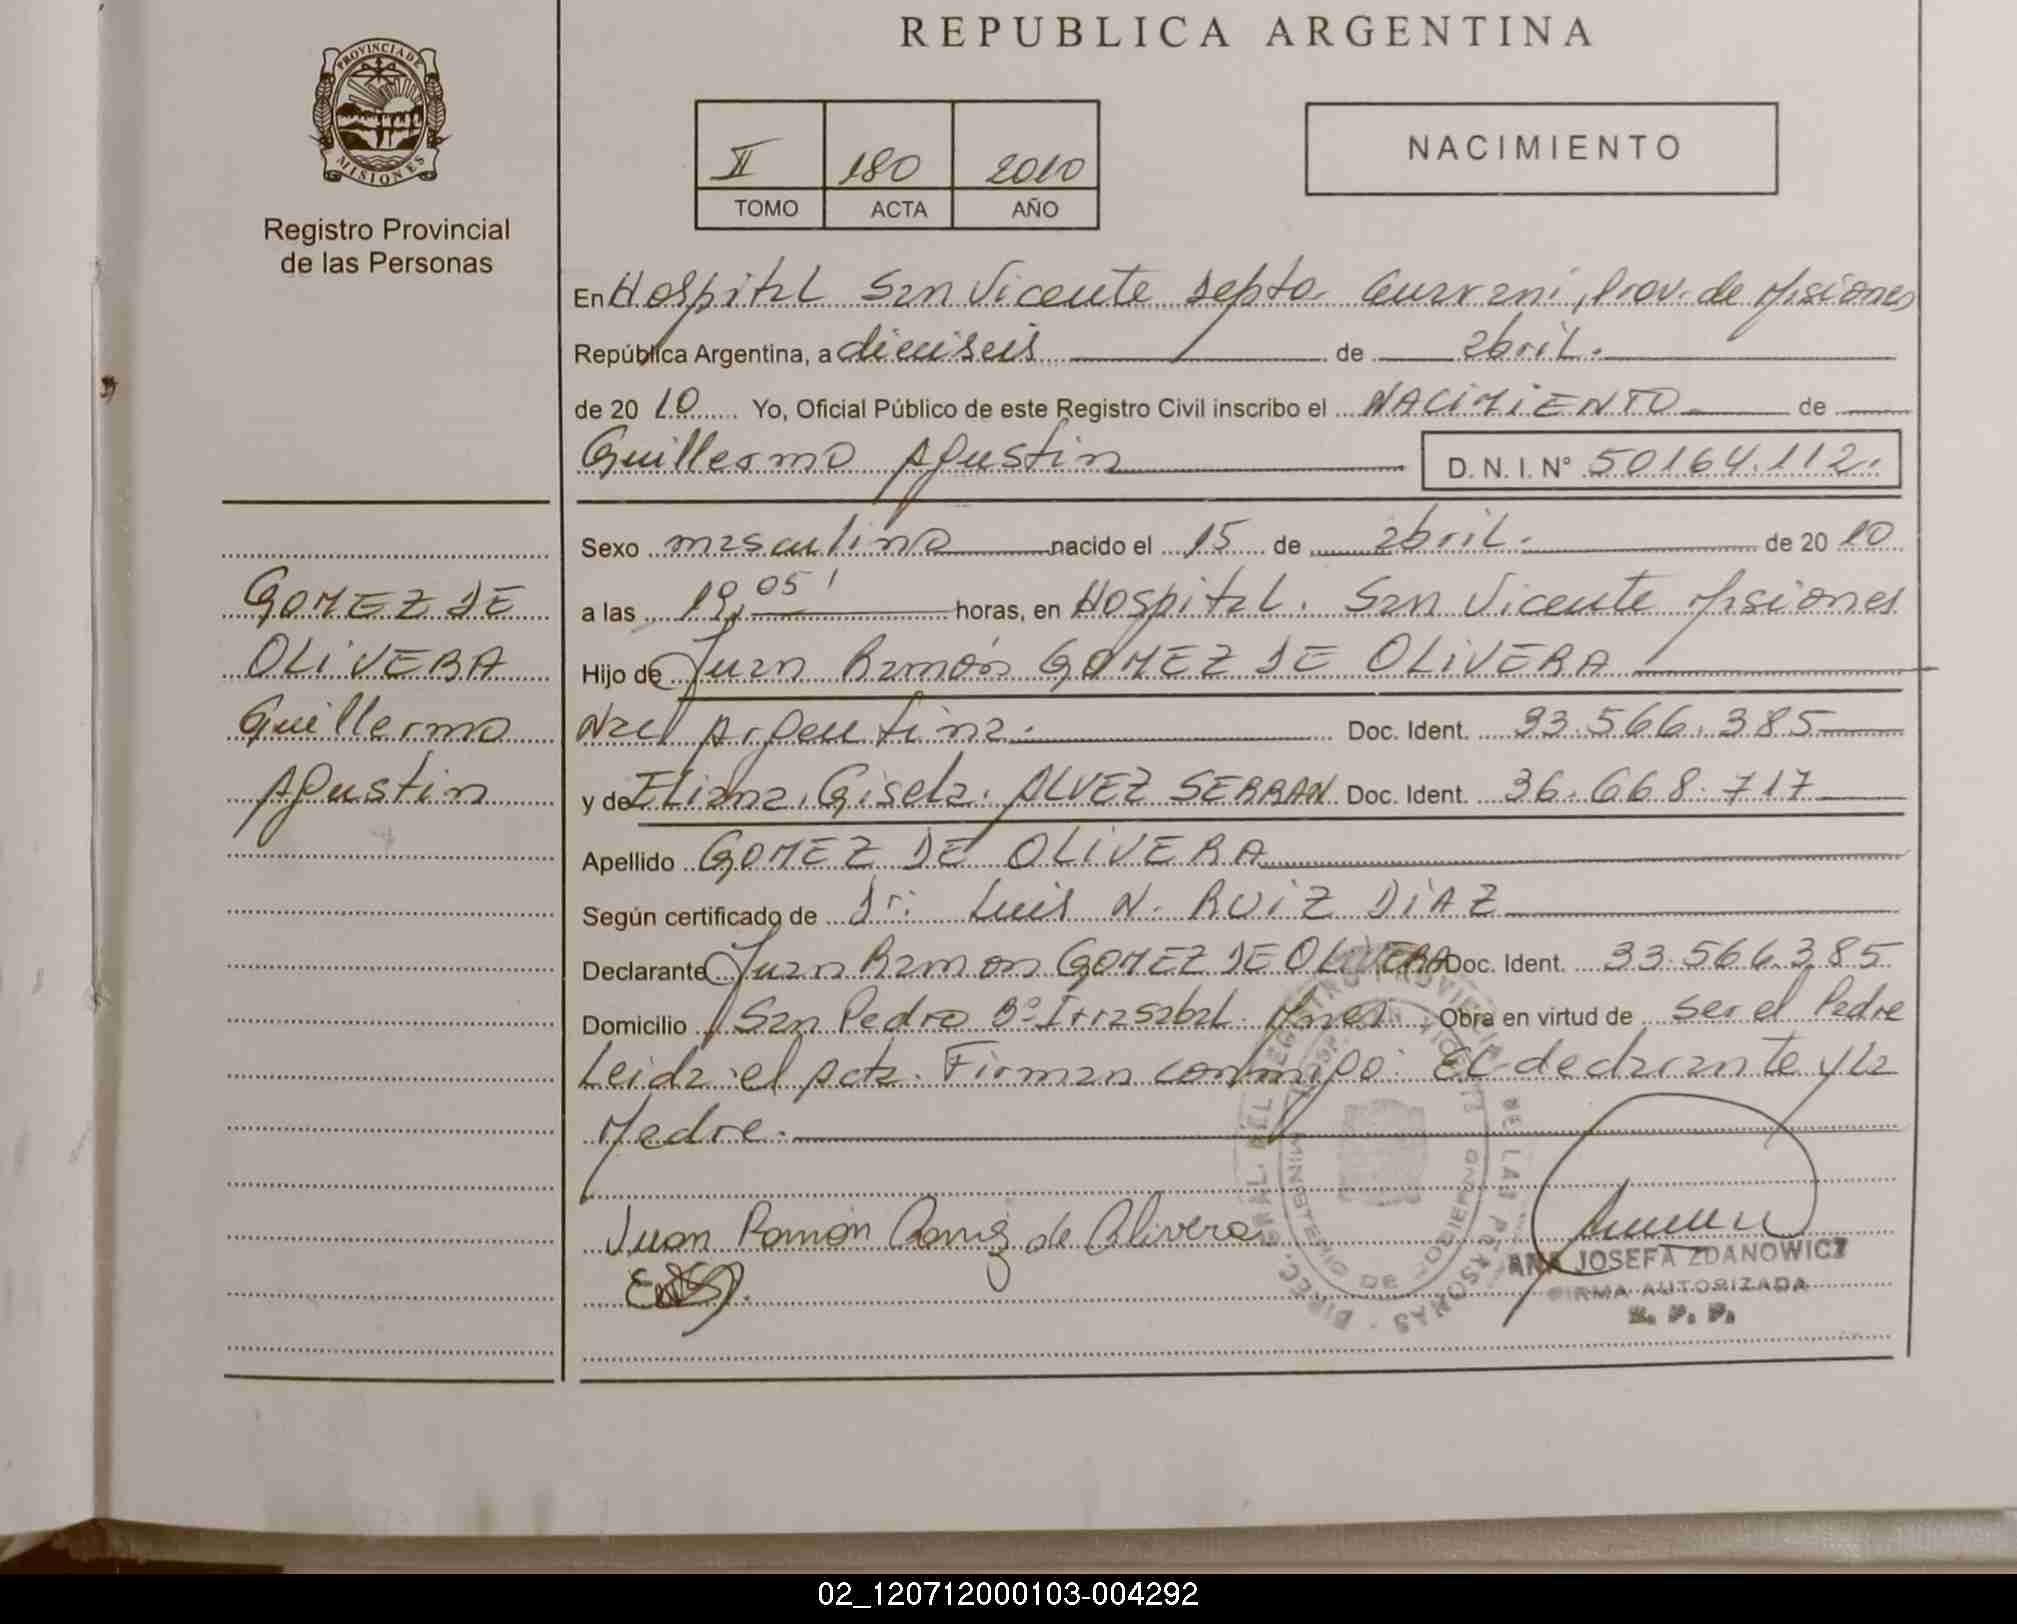 REPUBLICA ARGENTINA
PROVINCIA DE
MISIONES
Registro Provincial
de las Personas
II 180 2010
TOMO ACTA AÑO
NACIMIENTO
En Hospital San Vicente Depto Guarani, Prov. de Misiones
República Argentina, a dieciseis de abril.
de 2010 Yo, Oficial Público de este Registro Civil inscribo el NACIMIENTO de
Guillermo Agustin D. N. I. N° 50164.112.
Sexo masculino nacido el 15 de abril. de 2010
a las 19,05' horas, en Hospital. San Vicente Misiones
Hijo de Juan Ramón GOMEZ DE OLIVERA
Nac Argentina. Doc. Ident. 33.566.385
y de Eliana. Gisela. ALVEZ SERRAN Doc. Ident. 36.668.717
Apellido GOMEZ DE OLIVERA
Según certificado de Dr: Luis N. RUIZ DIAZ
Declarante Juan Ramon GOMEZ DE OLIVERA Doc. Ident. 33.566.385
Domicilio San Pedro B° Irrasabal. Mnes. Obra en virtud de ser el Padre
Leida el acta. Firman conmigo: El declarante y la
Madre.
Juan Ramón Gomez de Olivera
ANA JOSEFA ZDANOWICZ
FIRMA AUTORIZADA
R. P. P.
DIREC. GRAL. DEL REGISTRO PROVINCIAL DE LAS PERSONAS
MINISTERIO DE GOBIERNO
GOMEZ DE
OLIVERA
Guillermo
Agustin
02_120712000103-004292